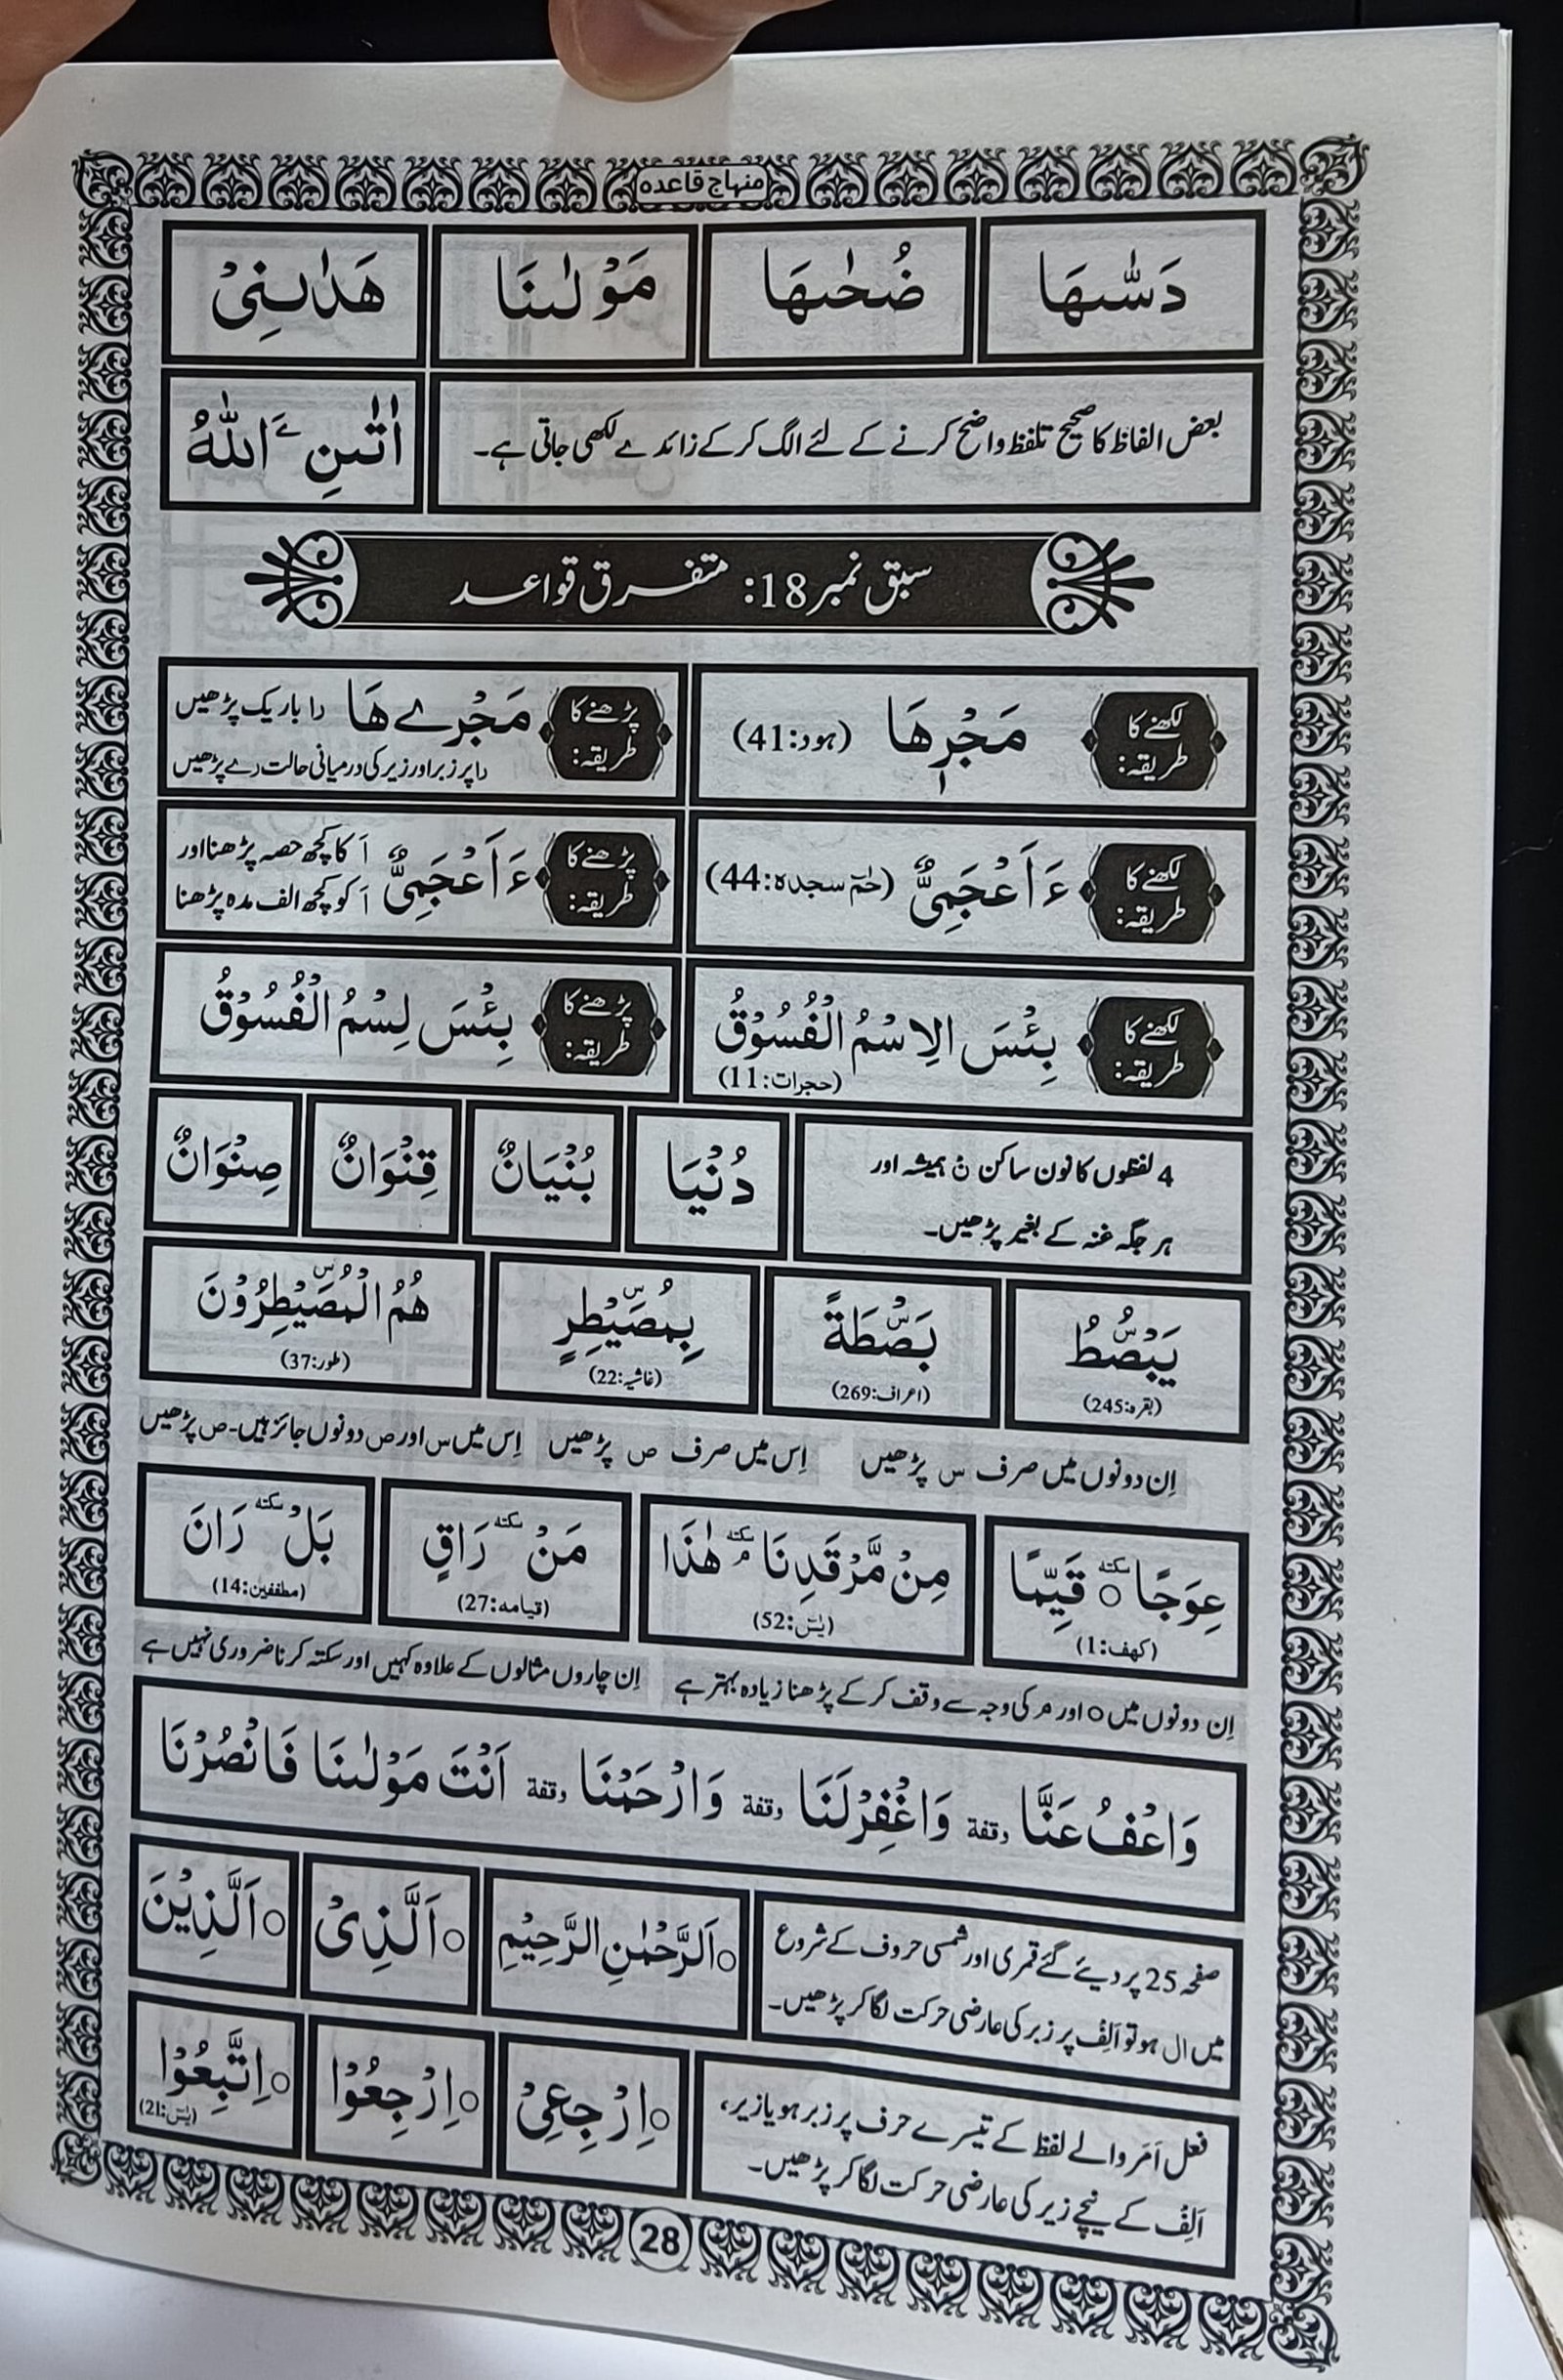 منہاج قاعدہ
دَسّٰىهَا ضُحٰىهَا مَوْلٰىنَا هَدٰىنِیْ
بعض الفاظ کا صحیح تلفظ واضح کرنے کے لئے الگ کر کے زائد ے لکھی جاتی ہے۔ اٰتٰىنِ ےَ اللّٰهُ
سبق نمبر 18: متفرق قواعد
لکھنے کا طریقہ: مَجْرٖىهَا (ہود:41) پڑھنے کا طریقہ: مَجْرے هَا را باریک پڑھیں
را پر زبر اور زیر کی درمیانی حالت رے پڑھیں
لکھنے کا طریقہ: ءَاَعْجَمِیٌّ (حٰمٓ سجدہ:44) پڑھنے کا طریقہ: ءَاَعْجَمِیٌّ اَ کا کچھ حصہ پڑھنا اور
اَ کو کچھ الف مدہ پڑھنا
لکھنے کا طریقہ: بِئْسَ الِاسْمُ الْفُسُوْقُ پڑھنے کا طریقہ: بِئْسَ لِسْمُ الْفُسُوْقُ
(حجرات:11)
4 لفظوں کا نون ساکن نْ ہمیشہ اور
ہر جگہ غنہ کے بغیر پڑھیں۔
دُنْیَا بُنْیَانٌ قِنْوَانٌ صِنْوَانٌ
یَبْصُۜطُ بَصْۜطَةً بِمُصَۜیْطِرٍ هُمُ الْمُصَۜیْطِرُوْنَ
(بقرہ:245) (اعراف:269) (غاشیہ:22) (طور:37)
اِن دونوں میں صرف س پڑھیں اِس میں صرف ص پڑھیں اِس میں س اور ص دونوں جائز ہیں-ص پڑھیں
عِوَجًا سکتہ ○ قَیِّمًا مِنْ مَّرْقَدِنَا سکتہ م هٰذَا مَنْ سکتہ رَاقٍ بَلْ سکتہ رَانَ
(کہف:1) (یٰسٓ:52) (قیامہ:27) (مطففین:14)
اِن دونوں میں ○ اور م کی وجہ سے وقف کر کے پڑھنا زیادہ بہتر ہے اِن چاروں مثالوں کے علاوہ کہیں اور سکتہ کرنا ضروری نہیں ہے
وَاعْفُ عَنَّا وقفة وَاغْفِرْلَنَا وقفة وَارْحَمْنَا وقفة اَنْتَ مَوْلٰىنَا فَانْصُرْنَا
صفحہ 25 پر دیئے گئے قمری اور شمسی حروف کے شروع
میں ال ہو تو اَلِفْ پر زبر کی عارضی حرکت لگا کر پڑھیں۔
○اَلرَّحْمٰنِ الرَّحِیْمِ ○اَلَّذِیْ ○اَلَّذِیْنَ
فعل اَمَر والے لفظ کے تیسرے حرف پر زبر ہو یا زیر،
اَلِفْ کے نیچے زیر کی عارضی حرکت لگا کر پڑھیں۔
○اِرْجِعِیْ ○اِرْجِعُوْا ○اِتَّبِعُوْا
(یٰسٓ:21)
28